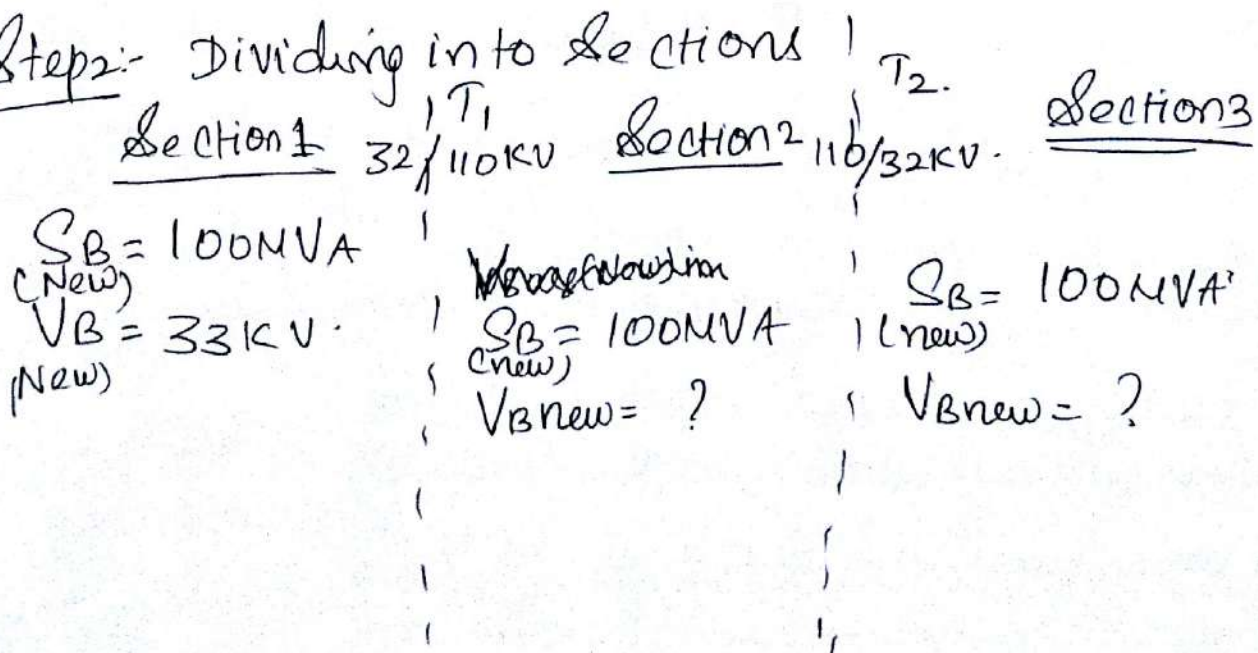 Step2:- Dividing into Sections
T1 T2.
Section 1 32/110KV Section 2 110/32KV. Section3
SB = 100MVA
(New)
VB = 33KV.
(New)
SB = 100MVA
(new)
VBnew = ?
SB = 100MVA
(new)
VBnew = ?